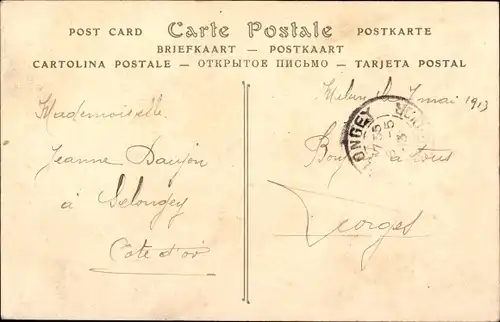 POST CARD Carte Postale POSTKARTE
BRIEFKAART — POSTKAART
CARTOLINA POSTALE — ОТКРЫТОЕ ПИСЬМО — TARJETA POSTAL
Mademoiselle
Jeanne Daujon
à Selongey
Cote d'or
Melun le 7 mai 1913
Bonjour à tous
Georges